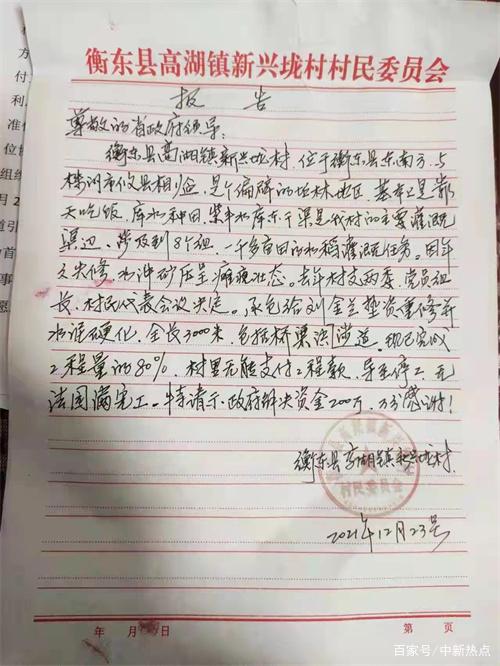 衡东县高湖镇新兴垅村村民委员会
报告
尊敬的省政府领导:
衡东县高湖镇新兴垅村,位于衡东县东南方,与
株洲市攸县相临,是个偏僻的山林地区,基本上是靠
天吃饭,库水种田,柴山水库东干渠是我村的主要灌溉
渠边,涉及到8个组,一千多亩田的水稻灌溉任务。因年
久失修,水冲砂压呈瘫痪状态。去年村支两委,党员组
长,村民代表会议决定。承包给刘金兰垫资重修并
水泥硬化,全长3000米,包括桥渠涵道。现已完成
工程量的80%,村里无能支付工程款,导至停工,无
法圆满完工。特请示政府解决资金200万,万分感谢!
衡东县高湖镇新兴垅村
村民委员会
2021年12月23号
年 月 日 第 页
百家号/中新热点
方
付
利
准
位
组
月2
道引
首
事
愿